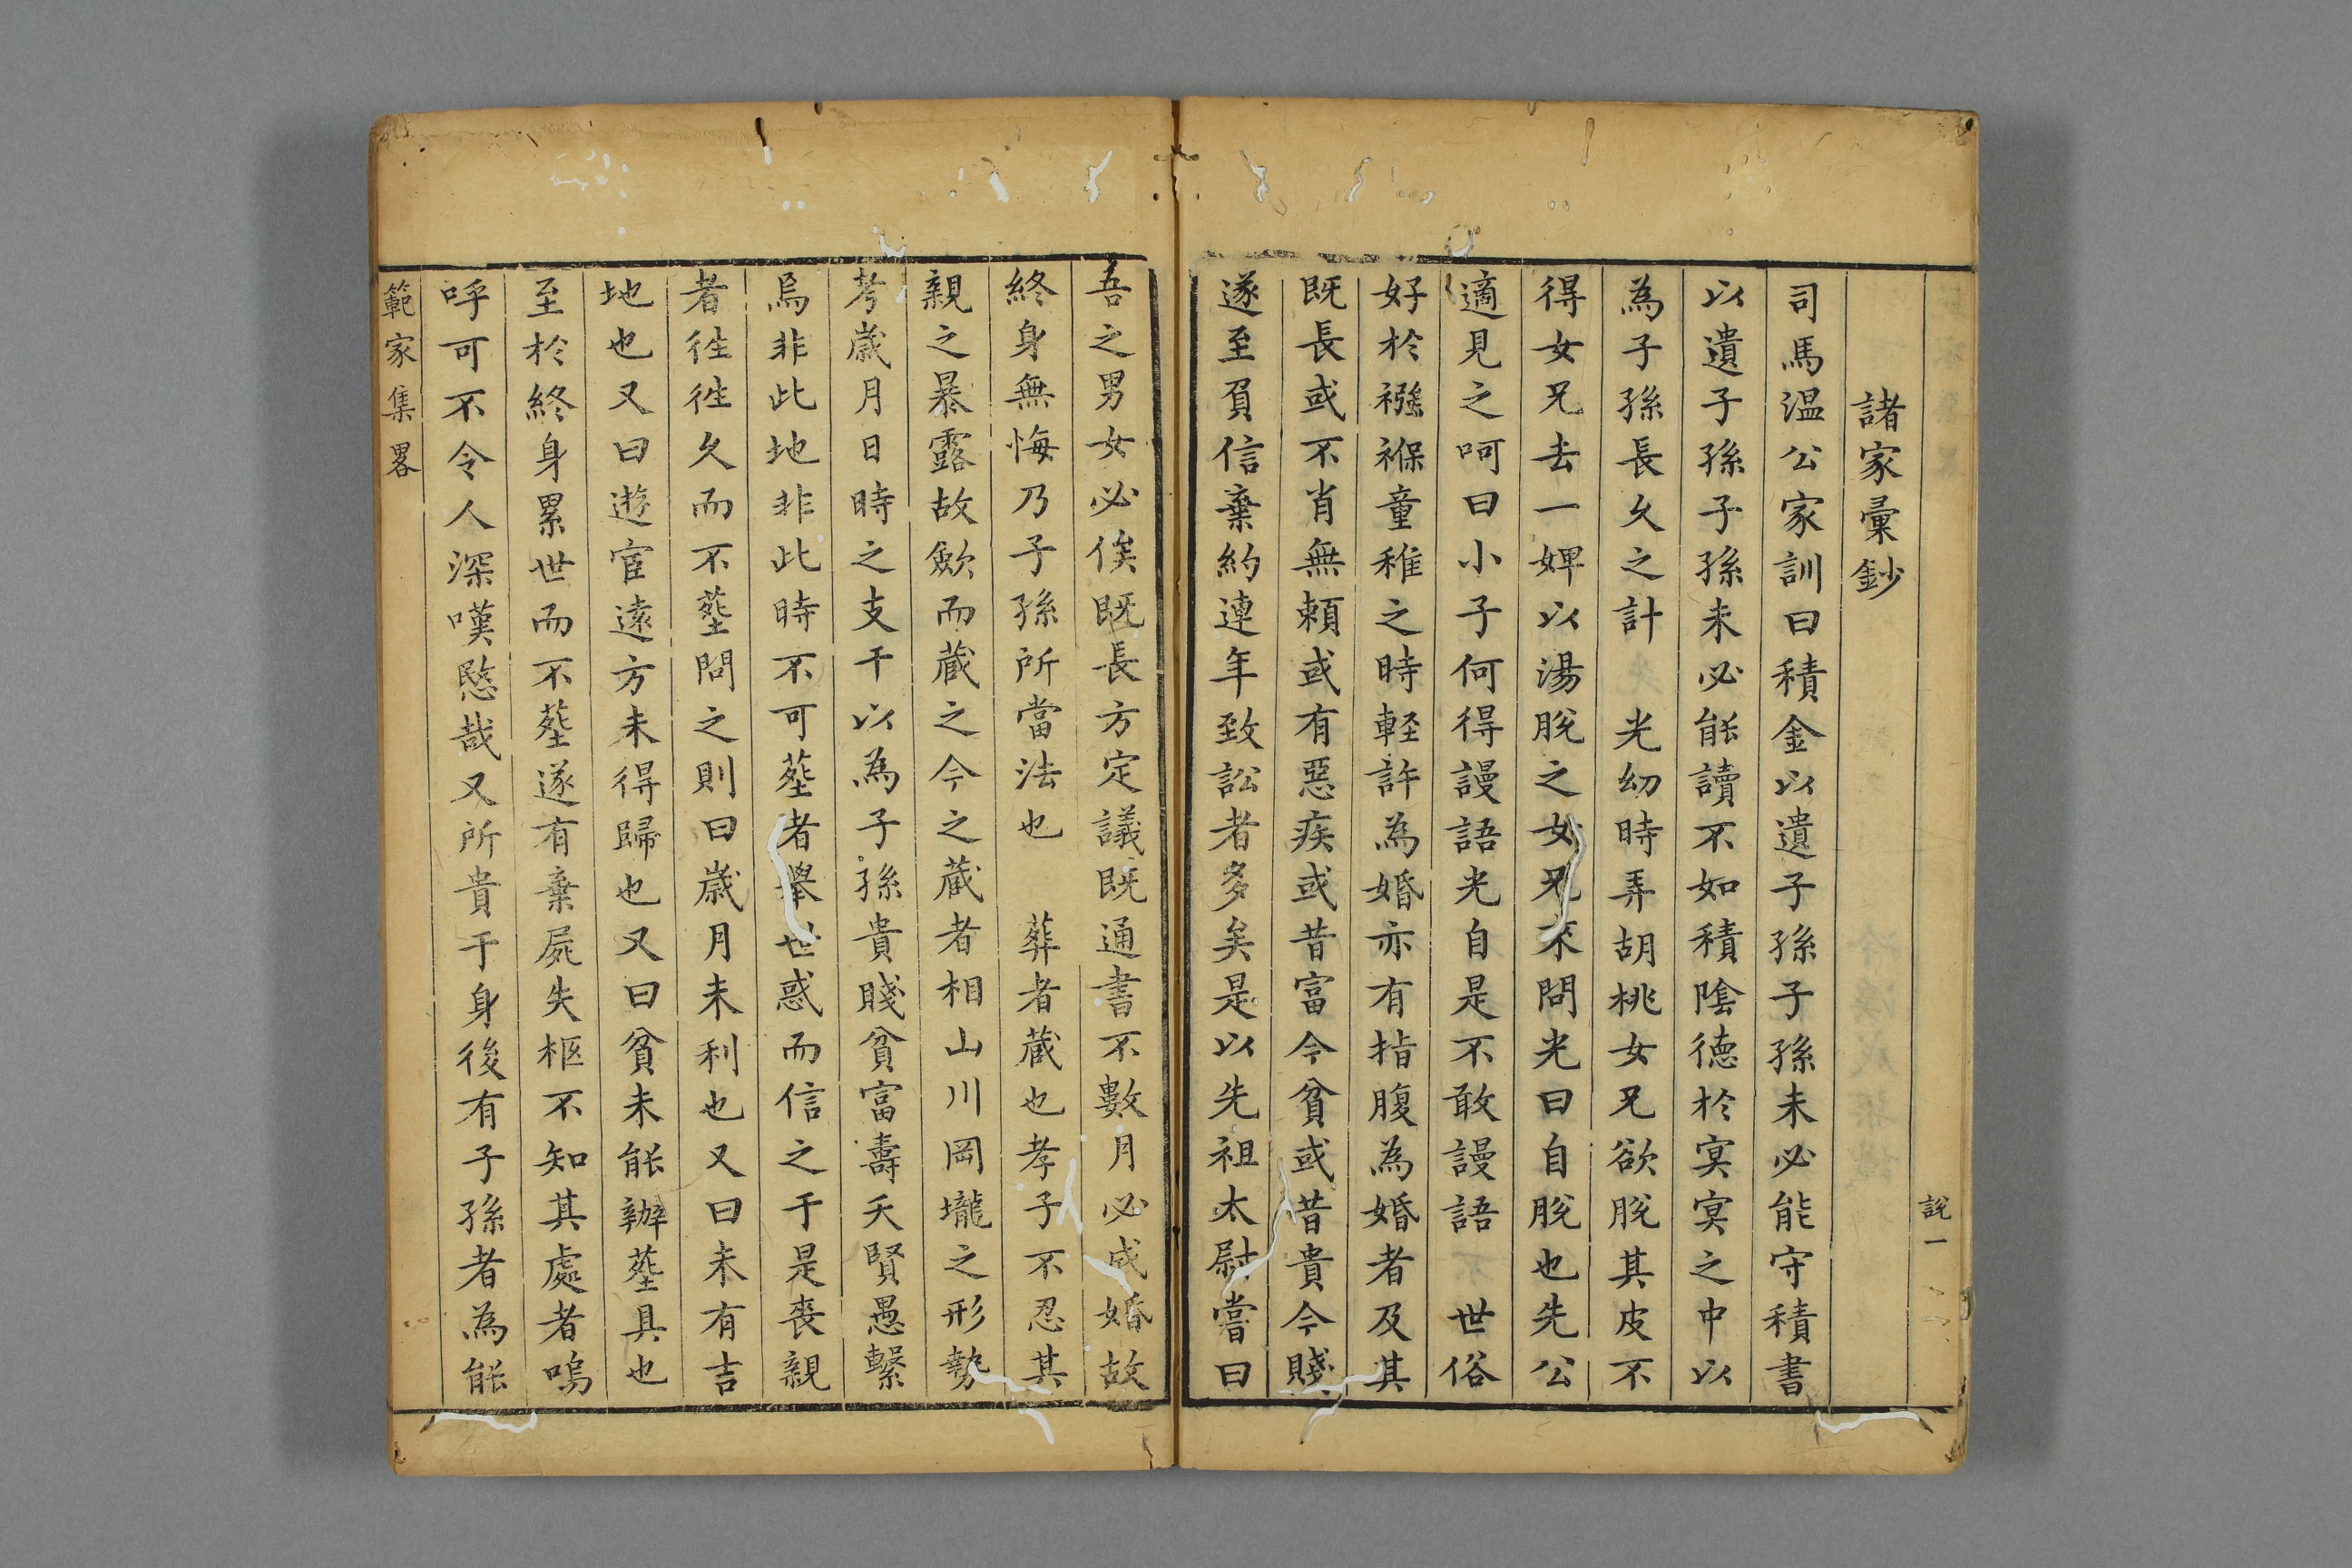 說一
諸家彙鈔
司馬温公家訓曰積金以遺子孫子孫未必能守積書
以遺子孫子孫未必能讀不如積隂德於㝠㝠之中以
為子孫長久之計 光幼時弄胡桃女兄欲脫其皮不
得女兄去一婢以湯脫之女兄來問光曰自脫也先公
適見之呵曰小子何得謾語光自是不敢謾語 世俗
好於襁褓童稚之時輕許為婚亦有指腹為婚者及其
既長或不肖無頼或有惡疾或昔富今貧或昔貴今賤
遂至負信棄約連年致訟者多矣是以先祖太尉嘗曰
吾之男女必俟既長方定議既通書不數月必成婚故
終身無悔乃子孫所當法也 葬者蔵也孝子不忍其
親之暴露故歛而蔵之今之蔵者相山川岡壠之形勢
考歲月日時之支干以為子孫貴賤貧富壽夭賢愚繫
焉非此地非此時不可塟者舉世惑而信之于是喪親
者徃徃久而不塟問之則曰歲月未利也又曰未有吉
地也又曰遊宦遠方未得歸也又曰貧未能辦塟具也
至於終身累世而不塟遂有棄屍失柩不知其處者嗚
呼可不令人深嘆愍哉又所貴于身後有子孫者為能
範家集畧